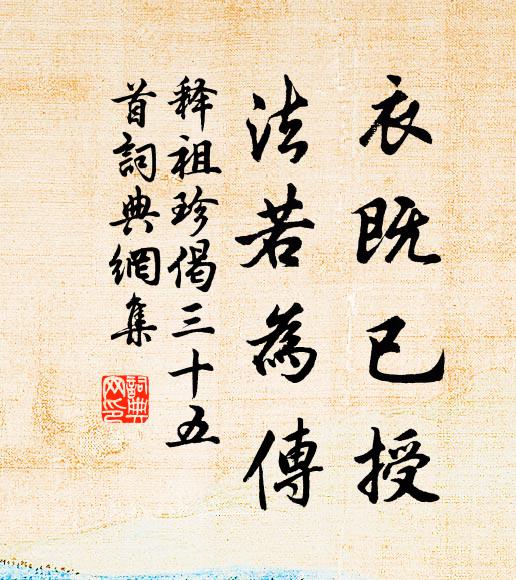 衣既已授
法若為傳
释祖珍偈三十五
首詞典網集
詞典網印